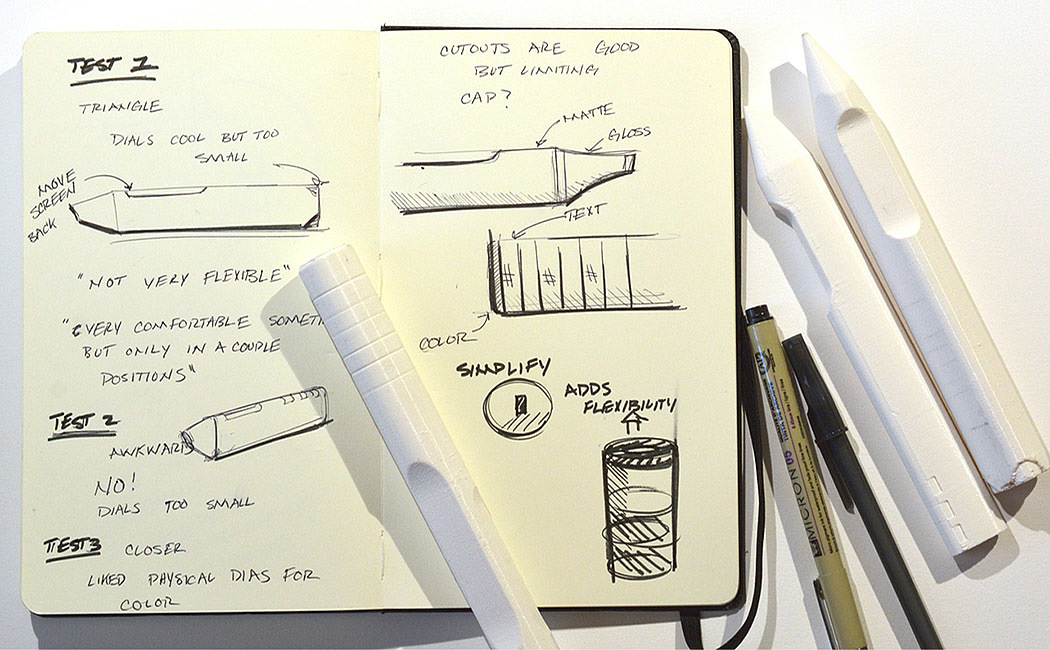 TEST 1
TRIANGLE
DIALS COOL BUT TOO
SMALL
MOVE
SCREEN
BACK
"NOT VERY FLEXIBLE"
"VERY COMFORTABLE
BUT ONLY IN A COUPLE
POSITIONS"
TEST 2
AWKWARD
NO!
DIALS TOO SMALL
TEST 3 CLOSER
LIKED PHYSICAL DIAS FOR
COLOR
CUTOUTS ARE GOOD
BUT LIMITING
CAP?
MATTE
GLOSS
TEXT
# # #
COLOR
SIMPLIFY
ADDS
FLEXIBILITY
MICRON 05